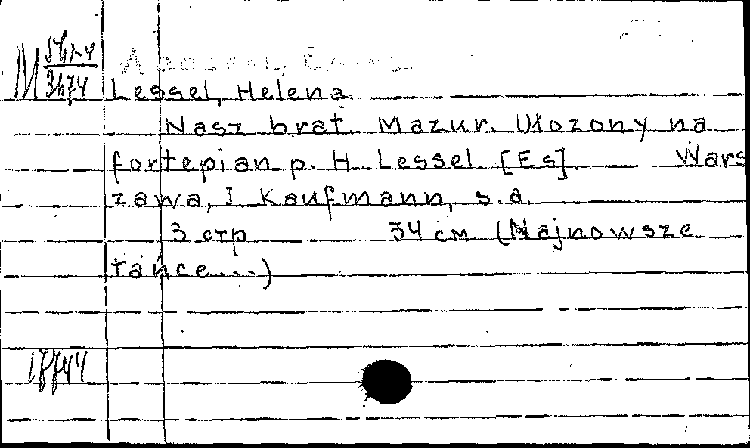 Lessel, Helena
Nasz brat. Mazur. Ułożony na
fortepian p. H. Lessel. [Es]. Wars
zawa, I. Kaufmann, s.a.
3 стр 34 см (Najnowsze
tańce...)